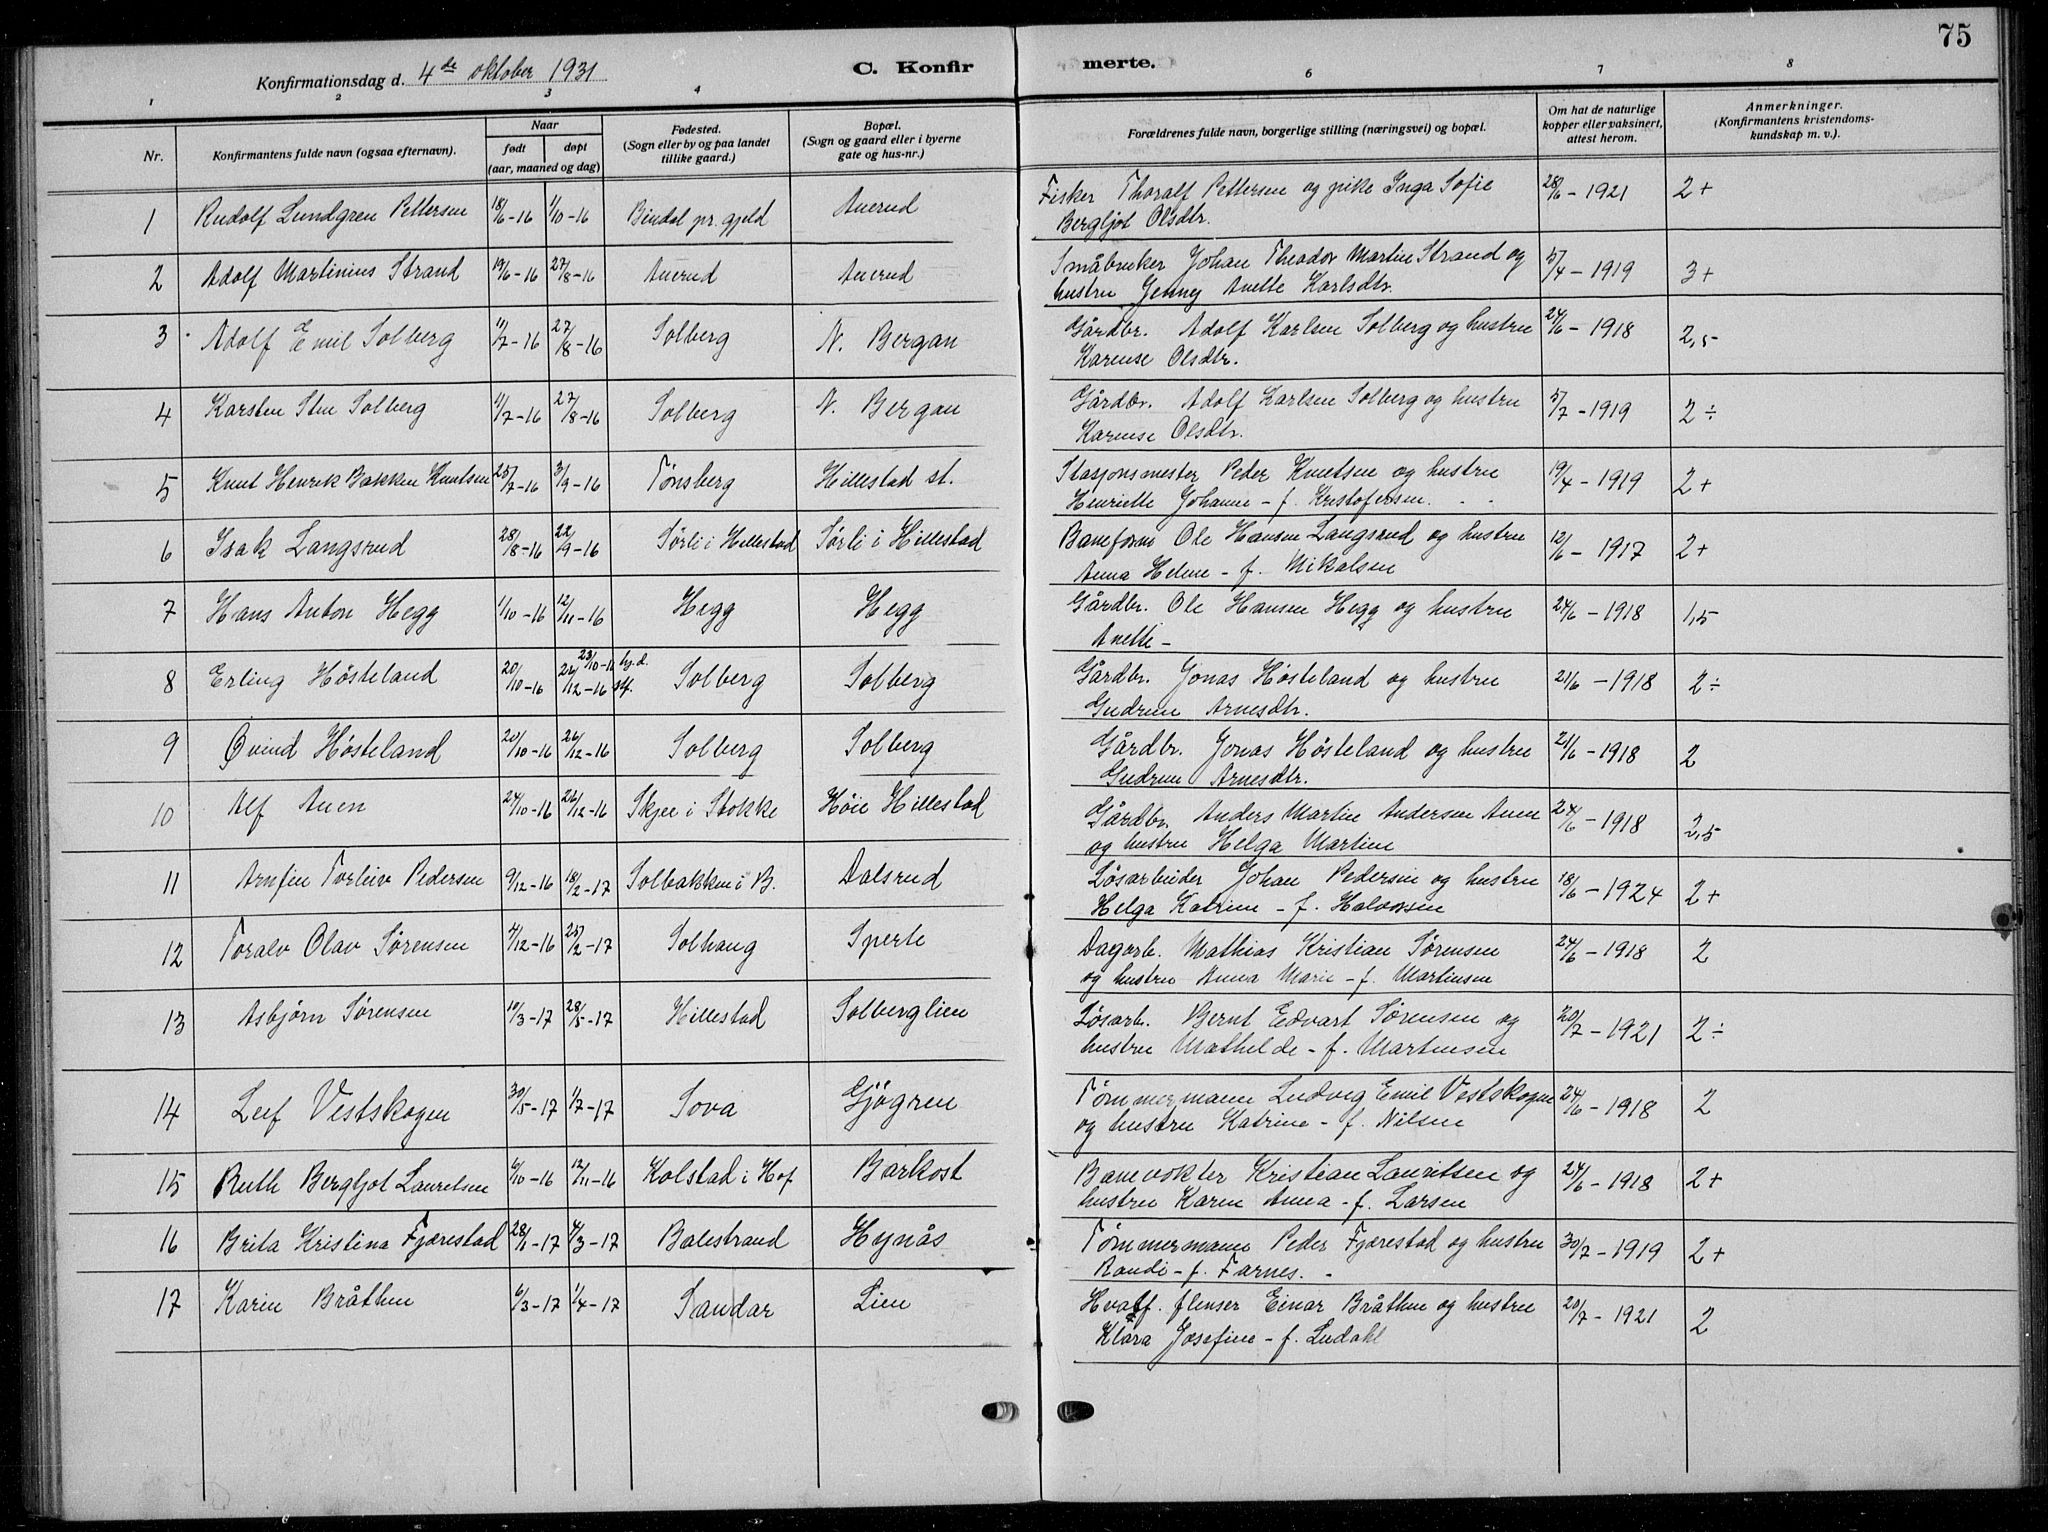 75
Konfirmationsdag d. 4de oktober 1931
C. Konfirmerte.
1 2 3 4 6 7 8
Nr.
Konfirmantens fulde navn (ogsaa efternavn).
Naar
født døpt
(aar, maaned og dag)
Fødested.
(Sogn eller by og paa landet
tillike gaard.)
Bopæl.
(Sogn og gaard eller i byerne
gate og hus-nr.)
Forældrenes fulde navn, borgerlige stilling (næringsvei) og bopæl.
Om hat de naturlige
kopper eller vaksinert,
attest herom.
Anmerkninger.
(Konfirmantens kristendoms-
kundskap m. v.).
1 Rudolf Lundgren Pettersen 18/6-16 1/10-16 Bindal pr.gjeld Auerud Fisker Thoralf Pettersen og pike Inga Sofie 28/6-1921 2+
Bergljot Olsdtr.
2 Adolf Martinius Strand 19/6-16 27/8-16 Auerud Auerud Småbruker Johan Theodor Martin Strand og 5/4-1919 3+
hustru Jenny Anette Karlsdtr.
3 Adolf Emil Solberg 11/7-16 27/8-16 Solberg N. Bergan Gårdbr. Adolf Karlsen Solberg og hustru 24/6-1918 2,5
Karense Olsdtr.
4 Karsten Sten Solberg 11/7-16 27/8-16 Solberg N. Bergan Gårdbr. Adolf Karlsen Solberg og hustru 5/7-1919 2÷
Karense Olsdtr.
5 Knut Henrik Bakken Knutsen 25/7-16 3/9-16 Tønsberg Hillestad st. Stasjonsmester Peder Knutsen og hustru 19/4-1919 2+
Henriette Johanne - f. Kristofersen.
6 Isak Langsrud 28/8-16 22/9-16 Sørli i Hillestad Sørli i Hillestad Baneform Ole Hansen Langsrud og hustru 12/6-1917 2+
Anna Helene - f. Mikalsen
7 Hans Anton Hegg 1/10-16 12/11-16 Hegg Hegg Gårdbr. Ole Hansen Hegg og hustru 24/6-1918 1,5
Anette -
8 Erling Høsteland 20/10-16 23/10-16 hj.d. 26/12-16 stf. Solberg Solberg Gårdbr. Jonas Høsteland og hustru 21/6-1918 2÷
Gudrun Arnesdtr.
9 Øvind Høsteland 20/10-16 26/12-16 Solberg Solberg Gårdbr. Jonas Høsteland og hustru 21/6-1918 2
Gudrun Arnesdtr.
10 Alf Auen 24/10-16 26/12-16 Skjee i Stokke Høie Hillestad Gårdbr. Anders Martin Andersen Auen 24/6-1918 2,5
og hustru Helga Martine
11 Arnfin Torleiv Pedersen 9/12-16 18/2-17 Solbakken i B. Dalsrud Løsarbeider Johan Pedersen og hustru 18/6-1924 2+
Helga Katrine - f. Halvorsen
12 Toralv Olav Sørensen 4/12-16 25/2-17 Solhaug Sperte Dagarb. Mathias Kristian Sørensen 24/6-1918 2
og hustru Anna Marie - f. Martinsen
13 Asbjørn Sørensen 10/3-17 28/5-17 Hillestad Solberglien Løsarb. Bernt Edvart Sørensen og 20/7-1921 2÷
hustru Mathilde - f. Martinsen
14 Leif Vestskogen 30/5-17 1/7-17 Sova Gjøgren Tømmermann Ludvig Emil Vestskogen 24/6-1918 2
og hustru Katrine - f. Nilsen
15 Ruth Bergljot Lauritsen 6/10-16 12/11-16 Kolstad i Hof Barkost Banevokter Kristian Lauritsen og 24/6-1918 2+
hustru Karen Anna - f. Larsen
16 Brita Kristina Fjærestad 28/1-17 4/3-17 Balestrand Hynås Tømmermann Peder Fjærestad og hustru 30/7-1919 2+
Randi - f. Farnes.
17 Karin Bråthen 6/3-17 1/4-17 Sandar Lien Hvalf. flenser Einar Bråthen og hustru 20/7-1921 2
Klara Josefine - f. Lindahl